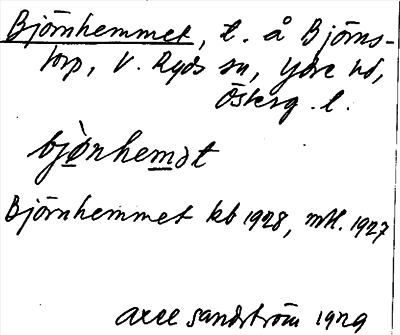 Björnhemmet, t. å Björns-
torp, V. Ryds sn, Ydre hd,
Österg. l.
bjö̀nhemət
Björnhemmet kb 1928, mtl. 1927
Axel Sandström 1929